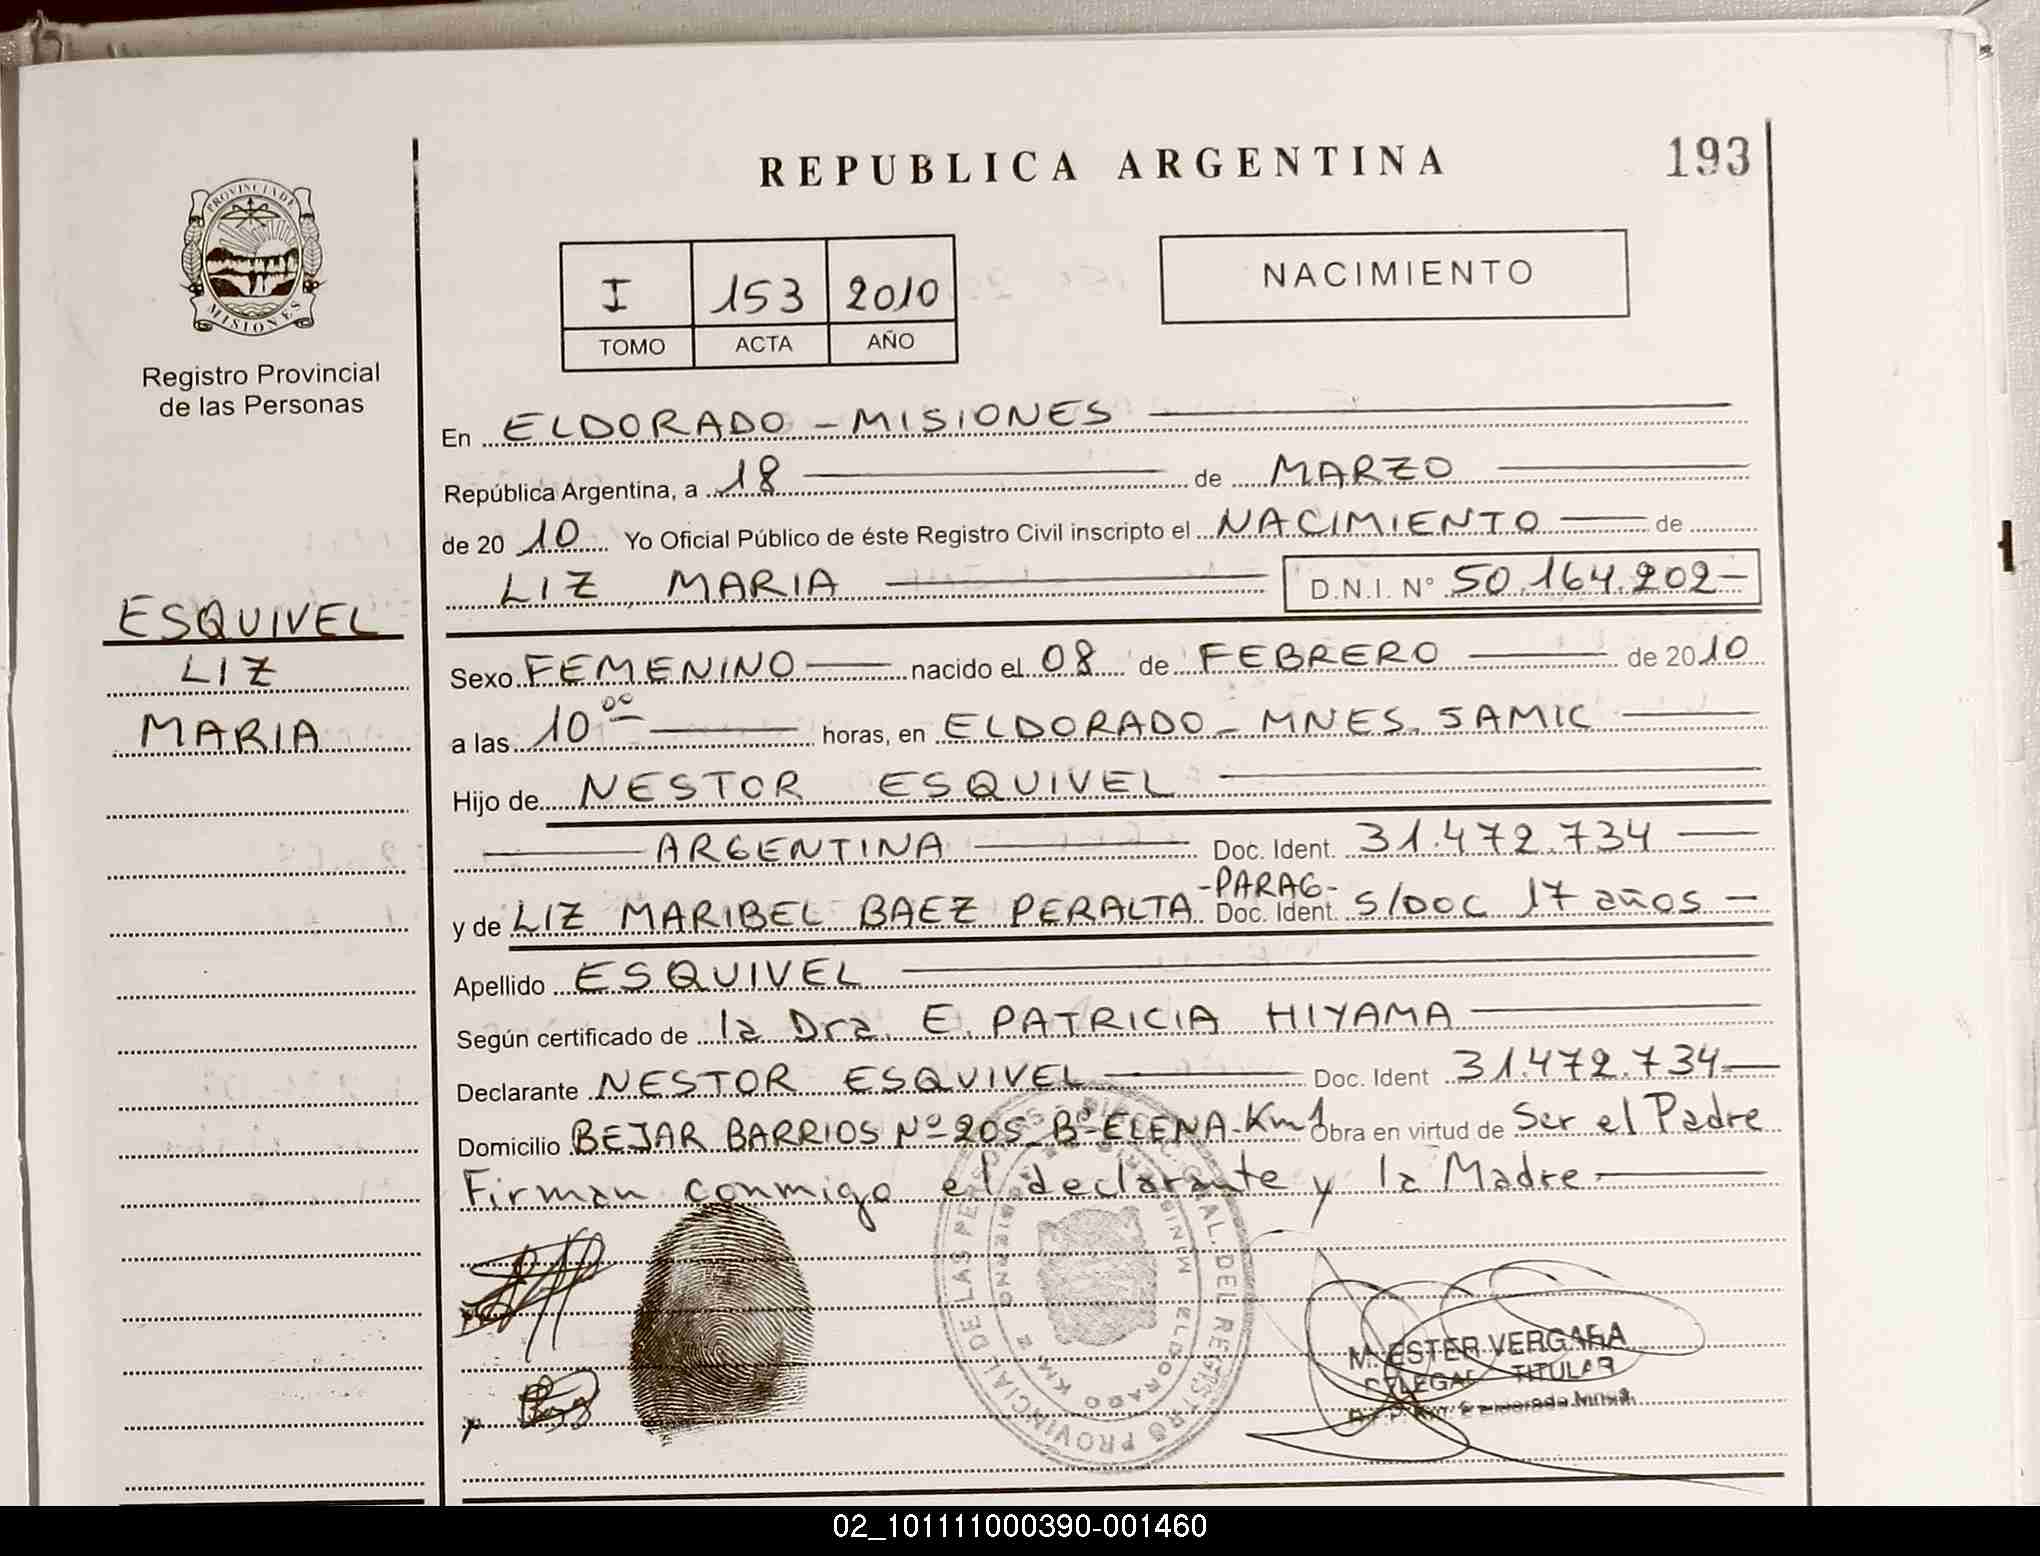 REPUBLICA ARGENTINA
193
PROVINCIA DE
MISIONES
Registro Provincial
de las Personas
I 153 2010
TOMO ACTA AÑO
NACIMIENTO
En ELDORADO - MISIONES
República Argentina, a 18 de MARZO
de 2010 Yo Oficial Público de éste Registro Civil inscripto el NACIMIENTO de
LIZ MARIA D.N.I. Nº 50.164.202-
ESQUIVEL
LIZ
MARIA
Sexo FEMENINO nacido el 08 de FEBRERO de 2010
a las 10 00 horas, en ELDORADO - MNES. SAMIC
Hijo de NESTOR ESQUIVEL
ARGENTINA Doc. Ident. 31.472.734
y de LIZ MARIBEL BAEZ PERALTA -PARAG- Doc. Ident. S/DOC 17 años -
Apellido ESQUIVEL
Según certificado de la Dra. E. PATRICIA HIYAMA
Declarante NESTOR ESQUIVEL Doc. Ident 31.472.734
Domicilio BEJAR BARRIOS Nº 205 Bº ELENA-Km1 Obra en virtud de Ser el Padre
Firman conmigo el declarante y la Madre
DIR. GRAL. DEL REGISTRO PROVINCIAL DE LAS PERSONAS
ELDORADO KM 2
M. ESTER VERGARA
TITULAR
02_101111000390-001460